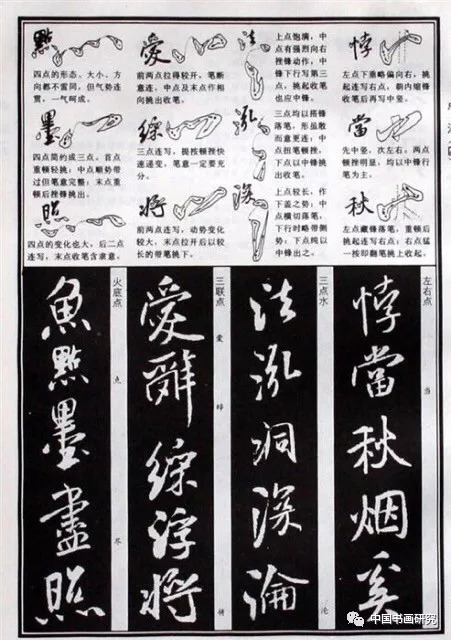 悖
左点下重略偏向右，挑
起连写右点，朝内缩锋
收笔后再写中竖。
當
先中竖，次左右。两点
顿挫明显，均以中锋行
笔为主。
秋
左点藏锋落笔，重顿后
挑起连写右点；右点猛
一按即翻笔挑上收起。
法
上点饱满，中
点有强烈向右
挫锋动作，中
锋下行写第三
点，挑起收笔
也应中锋。
泓
三点均以搭锋
落笔，形虽散
而意更连；中
点扭笔顿挫，
下点以中锋
挑出收笔。
深
上点较长，作
下盖之势；中
点横切落笔，
下行时略带侧
势；下点纯以
中锋出之。
愛
前两点拉得较开，笔断
意连，中点及末点作相
向挑出收笔。
綜
三点连写，提按顿挫快
速递变，笔意一定要充
分。
將
前两点连写，动势变化
较大，末点拉开后以较
长的带笔挑下。
點
四点的形态、大小、方
向都不雷同，但气势连
贯，一气呵成。
墨
四点简约成三点。首点
重顿轻挑；中点顺势带
过但笔意完整；末点重
顿后挫锋挑出。
照
四点的变化也大，后二点
连写，末点收笔含隶意。
左右点
当
悖當秋烟奚
三点水
沦
法泓洞深淪
三联点
爱
将
愛辭綜浮將
火底点
点
尽
魚點墨盡照
中国书画研究